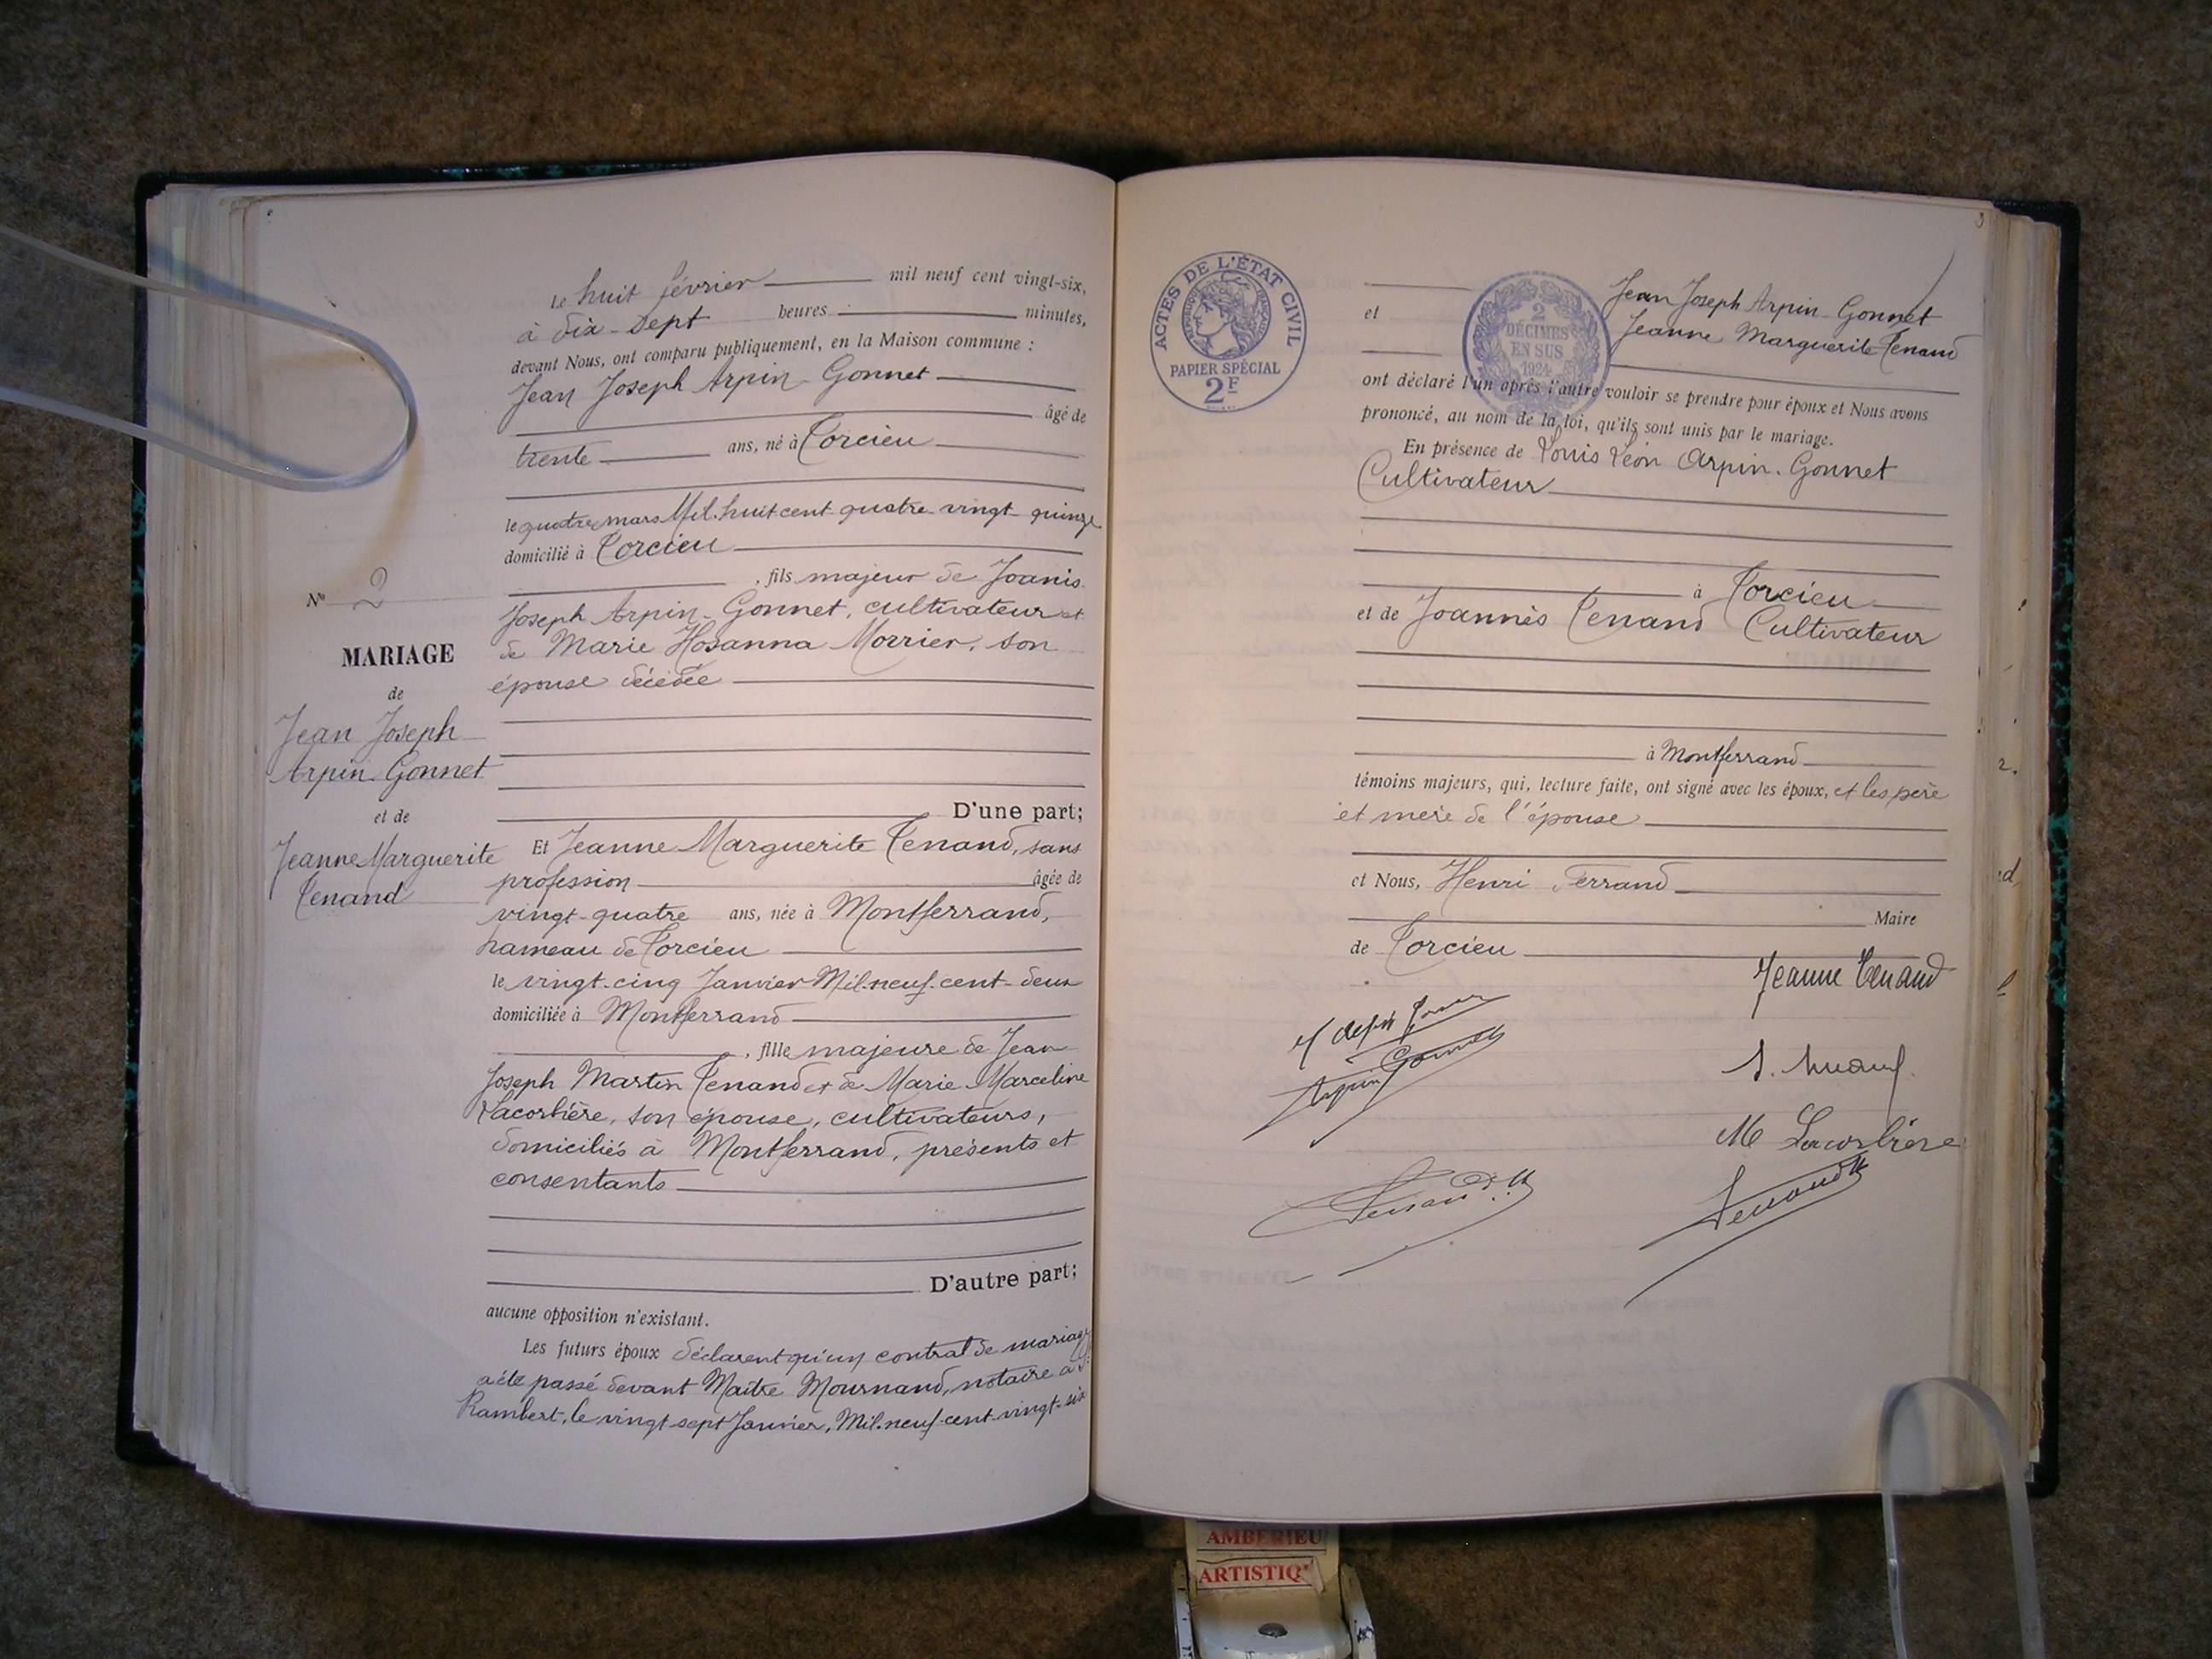 le huit février mil neuf cent vingt-six,
à dix-sept heures minutes,
devant Nous, ont comparu publiquement, en la Maison commune :
Jean Joseph Arpin-Gonnet
âgé de
trente ans, né à Torcieu
le quatre mars Mil-huit cent-quatre-vingt-quinze
domicilié à Torcieu
, fils majeur de Joanis
Joseph Arpin-Gonnet, cultivateur et
de Marie Hosanna Morrier, son
épouse décédée
D'une part;
Et Jeanne Marguerite Tenand, sans
profession âgée de
vingt-quatre ans, née à Montferrand,
hameau de Torcieu
le vingt-cinq Janvier Mil-neuf-cent-deux
domiciliée à Montferrand
, fille majeure de Jean
Joseph Martin Tenand et de Marie-Marceline
Lacorbière, son épouse, cultivateurs,
domiciliés à Montferrand, présents et
consentants
D'autre part;
aucune opposition n'existant.
Les futurs époux déclarent qu'un contrat de mariage
a été passé devant Maître Mournand, notaire à St
Rambert, le vingt-sept Janvier, Mil-neuf-cent-vingt-six
N° 2
MARIAGE
de
Jean Joseph
Arpin-Gonnet
et de
Jeanne Marguerite
Tenand
3
ACTES DE L'ÉTAT CIVIL
RÉPUBLIQUE FRANÇAISE
PAPIER SPÉCIAL
2F
2
DÉCIMES
EN SUS
1924
Jean Joseph Arpin-Gonnet
et Jeanne Marguerite Tenand
ont déclaré l'un après l'autre vouloir se prendre pour époux et Nous avons
prononcé, au nom de la loi, qu'ils sont unis par le mariage.
En présence de Louis Léon Arpin-Gonnet
Cultivateur
à Torcieu
et de Joannès Tenand Cultivateur
à Montferrand
témoins majeurs, qui, lecture faite, ont signé avec les époux, et les père
et mère de l'épouse
et Nous, Henri Ferrand
Maire
de Torcieu
Jeanne Tenand
Arpin Gonnet
M Lacorbière
AMBERIEU
ARTISTIQ'